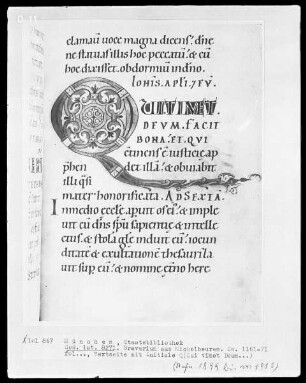 clamauit uoce magna dicens. dne
ne statuas illis hoc peccatū. & cū
hoc dixisset. obdormiuit in dno.
IOHIS. APLI. 7 EV.
QUI TIMET
DEUM. FACIT
BONA. ET. QUI
continens ē iusticię. ap
p̄hen det illā. & obuiabit
illi q̄si
mater honorificata. AD SEXTĀ.
In medio eccłę. aperuit os ei. & imple
uit eū dns spū sapientię & intellec
tus. & stola glę induit eū. iocun
ditatē & exultationē thesauriza
uit sup eū. & nomine ęterno here
München, Staatsbibliothek
Cod. lat. 8271. Breviarium aus Michelbeuren.
Textseite mit Initiale Q(ui timet Deum...)